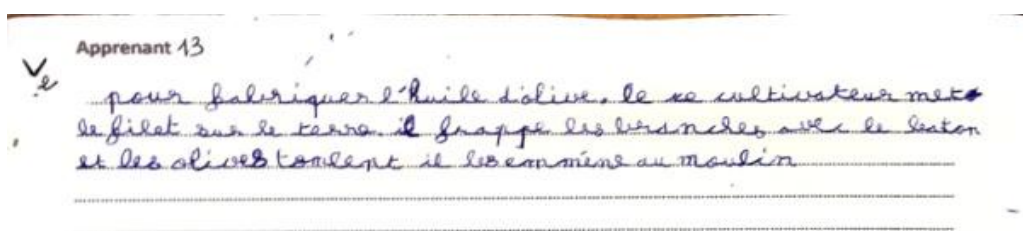 Apprenant 13
Ve
pour fabriquer l'huile d'olive. le ce cultivateur met
le filet sur le terre. il frappe les branches avec le baton
et les olives tombent il les emmène au moulin